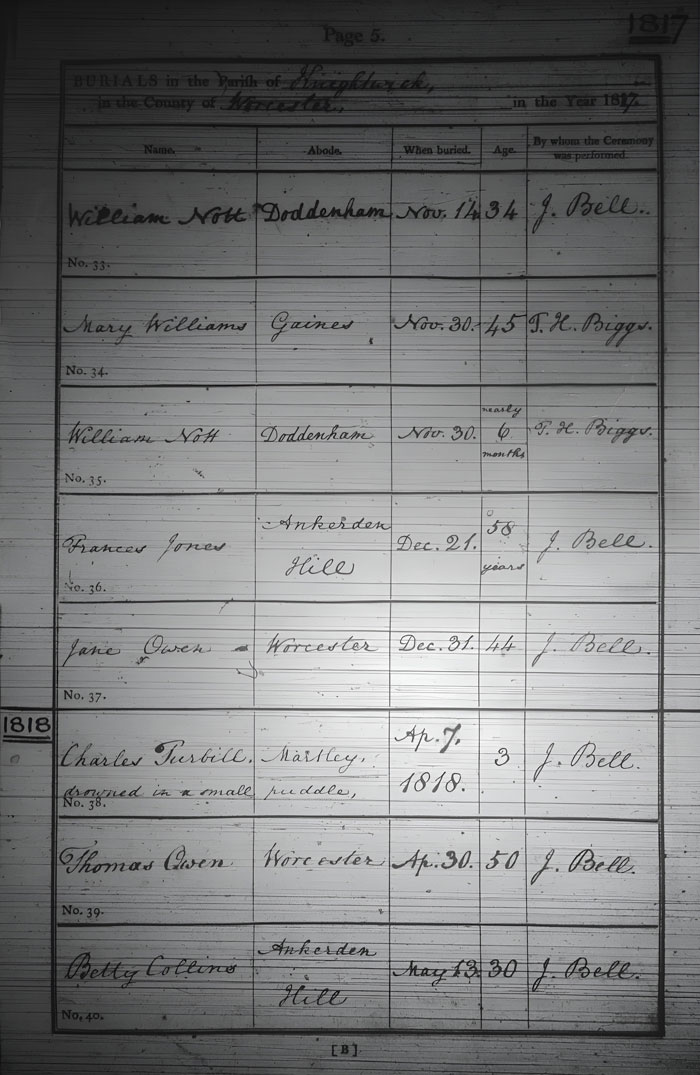 1817
Page 5.
BURIALS in the Parish of Knightwick,
in the County of Worcester, in the Year 1817.
Name. Abode. When buried. Age. By whom the Ceremony was performed.
William Nott Doddenham Nov. 14 34 J. Bell..
No. 33.
Mary Williams Gaines Nov. 30. 45 T. H. Biggs.
No. 34.
nearly
William Nott Doddenham Nov. 30. 6 T. H. Biggs.
months
No. 35.
Ankerden 58
Frances Jones Dec. 21. J. Bell.
Hill years
No. 36.
Jane Owen Worcester Dec. 31. 44 J. Bell.
No. 37.
1818
Ap. 7.
Charles Turbill. Martley. 3 J. Bell.
drowned in a small puddle, 1818.
No. 38.
Thomas Owen Worcester Ap. 30. 50 J. Bell.
No. 39.
Ankerden
Betty Collins May 13. 30 J. Bell.
Hill
No. 40.
[B]